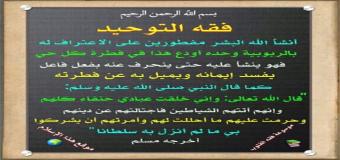 بسم الله الرحمن الرحيم
فقه التوحيد
أنشأ الله البشر مفطورين على الاعتراف له
بالربوبية وحده أودع هذا في فطرة كل حي
فهو ينشأ عليه حتى ينحرف عنه بفعل فاعل
يفسد إيمانه ويميل به عن فطرته
كما قال النبي صلى الله عليه وسلم:
"قال الله تعالى: وإني خلقت عبادي حنفاء كلهم
وإنهم أتتهم الشياطين فاجتالتهم عن دينهم
وحرمت عليهم ما أحللت لهم وأمرتهم أن يشركوا
بي ما لم أنزل به سلطانا"
اخرجه مسلم